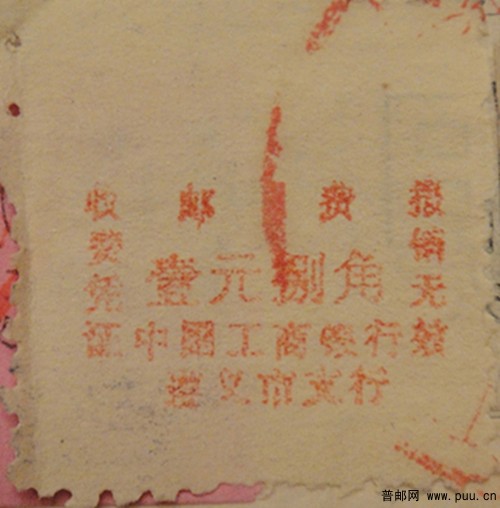 收费凭证
邮 费
壹元捌角
中国工商银行
遵义市支行
报销无效
普邮网 www.puu.cn